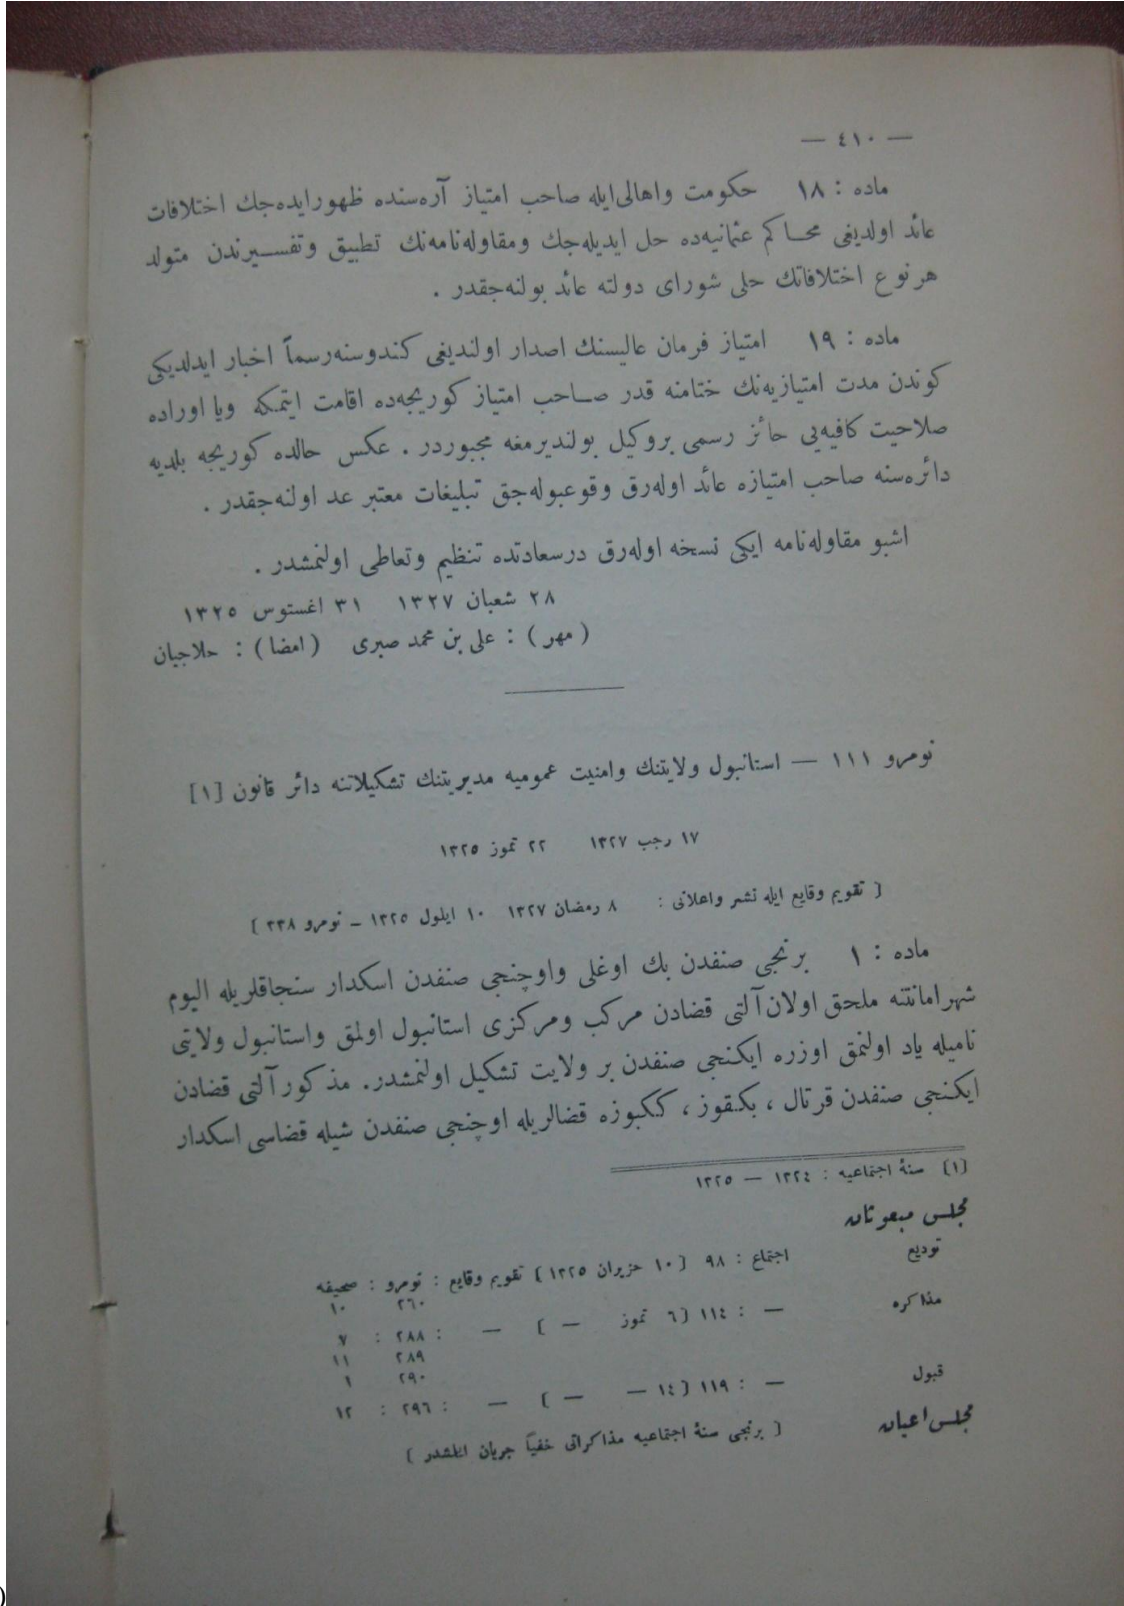 — ٤١٠ —
ماده : ١٨ حكومت واهالی‌ایله صاحب امتیاز آره‌سنده ظهورایده‌جك اختلافات
عائد اولدیغی محاكم عثمانیه‌ده حل ایدیله‌جك ومقاوله‌نامه‌نك تطبیق وتفسیرندن متولد
هرنوع اختلافاتك حلی شورای دولته عائد بولنه‌جقدر .
ماده : ١٩ امتیاز فرمان عالیسنك اصدار اولندیغی كندوسنه‌رسماً اخبار ایدلدیكی
كوندن مدت امتیازیه‌نك ختامنه قدر صاحب امتیاز كوریجه‌ده اقامت ایتمكه ویا اوراده
صلاحیت كافیه‌یی حائز رسمی بروكیل بولندیرمغه مجبوردر . عكس حالده كوریجه بلدیه
دائره‌سنه صاحب امتیازه عائد اوله‌رق وقوعبوله‌جق تبلیغات معتبر عد اولنه‌جقدر .
اشبو مقاوله‌نامه ایكی نسخه اوله‌رق درسعادتده تنظیم وتعاطی اولنمشدر .
٢٨ شعبان ١٣٢٧ ٣١ اغستوس ١٣٢٥
( مهر ) : علی بن محمد صبری ( امضا ) : حلاجیان
نومرو ١١١ — استانبول ولایتنك وامنیت عمومیه مدیریتنك تشكیلاتنه دائر قانون [١]
١٧ رجب ١٣٢٧ ٢٢ تموز ١٣٢٥
[ تقویم وقایع ایله نشر واعلانی : ٨ رمضان ١٣٢٧ ١٠ ایلول ١٣٢٥ ـ نومرو ٣٣٨ ]
ماده : ١ برنجی صنفدن بك اوغلی واوچنجی صنفدن اسكدار سنجاقلریله الیوم
شهرامانتنه ملحق اولان آلتی قضادن مركب ومركزی استانبول اولمق واستانبول ولایتی
نامیله یاد اولنمق اوزره ایكنجی صنفدن بر ولایت تشكیل اولنمشدر. مذكور آلتی قضادن
ایكنجی صنفدن قرتال ، بكقوز ، ككبوزه قضالریله اوچنجی صنفدن شیله قضاسی اسكدار
[١] سنۀ اجتماعیه : ١٣٢٤ — ١٣٢٥
مجلس مبعوثان
تودیع اجتماع : ٩٨ [ ١٠ حزیران ١٣٢٥ ] تقویم وقایع : نومرو : صحیفه
٢٦٠ ١٠
مذاكره — : ١١٤ [ ٦ تموز — ] — : ٢٨٨ : ٧
٢٨٩ ١١
٢٩٠ ١
قبول — : ١١٩ [ ١٤ — — ] — : ٢٩٦ : ١٢
مجلس اعیان
[ برنجی سنۀ اجتماعیه مذاكراتی خفیاً جریان ایتمشدر ]